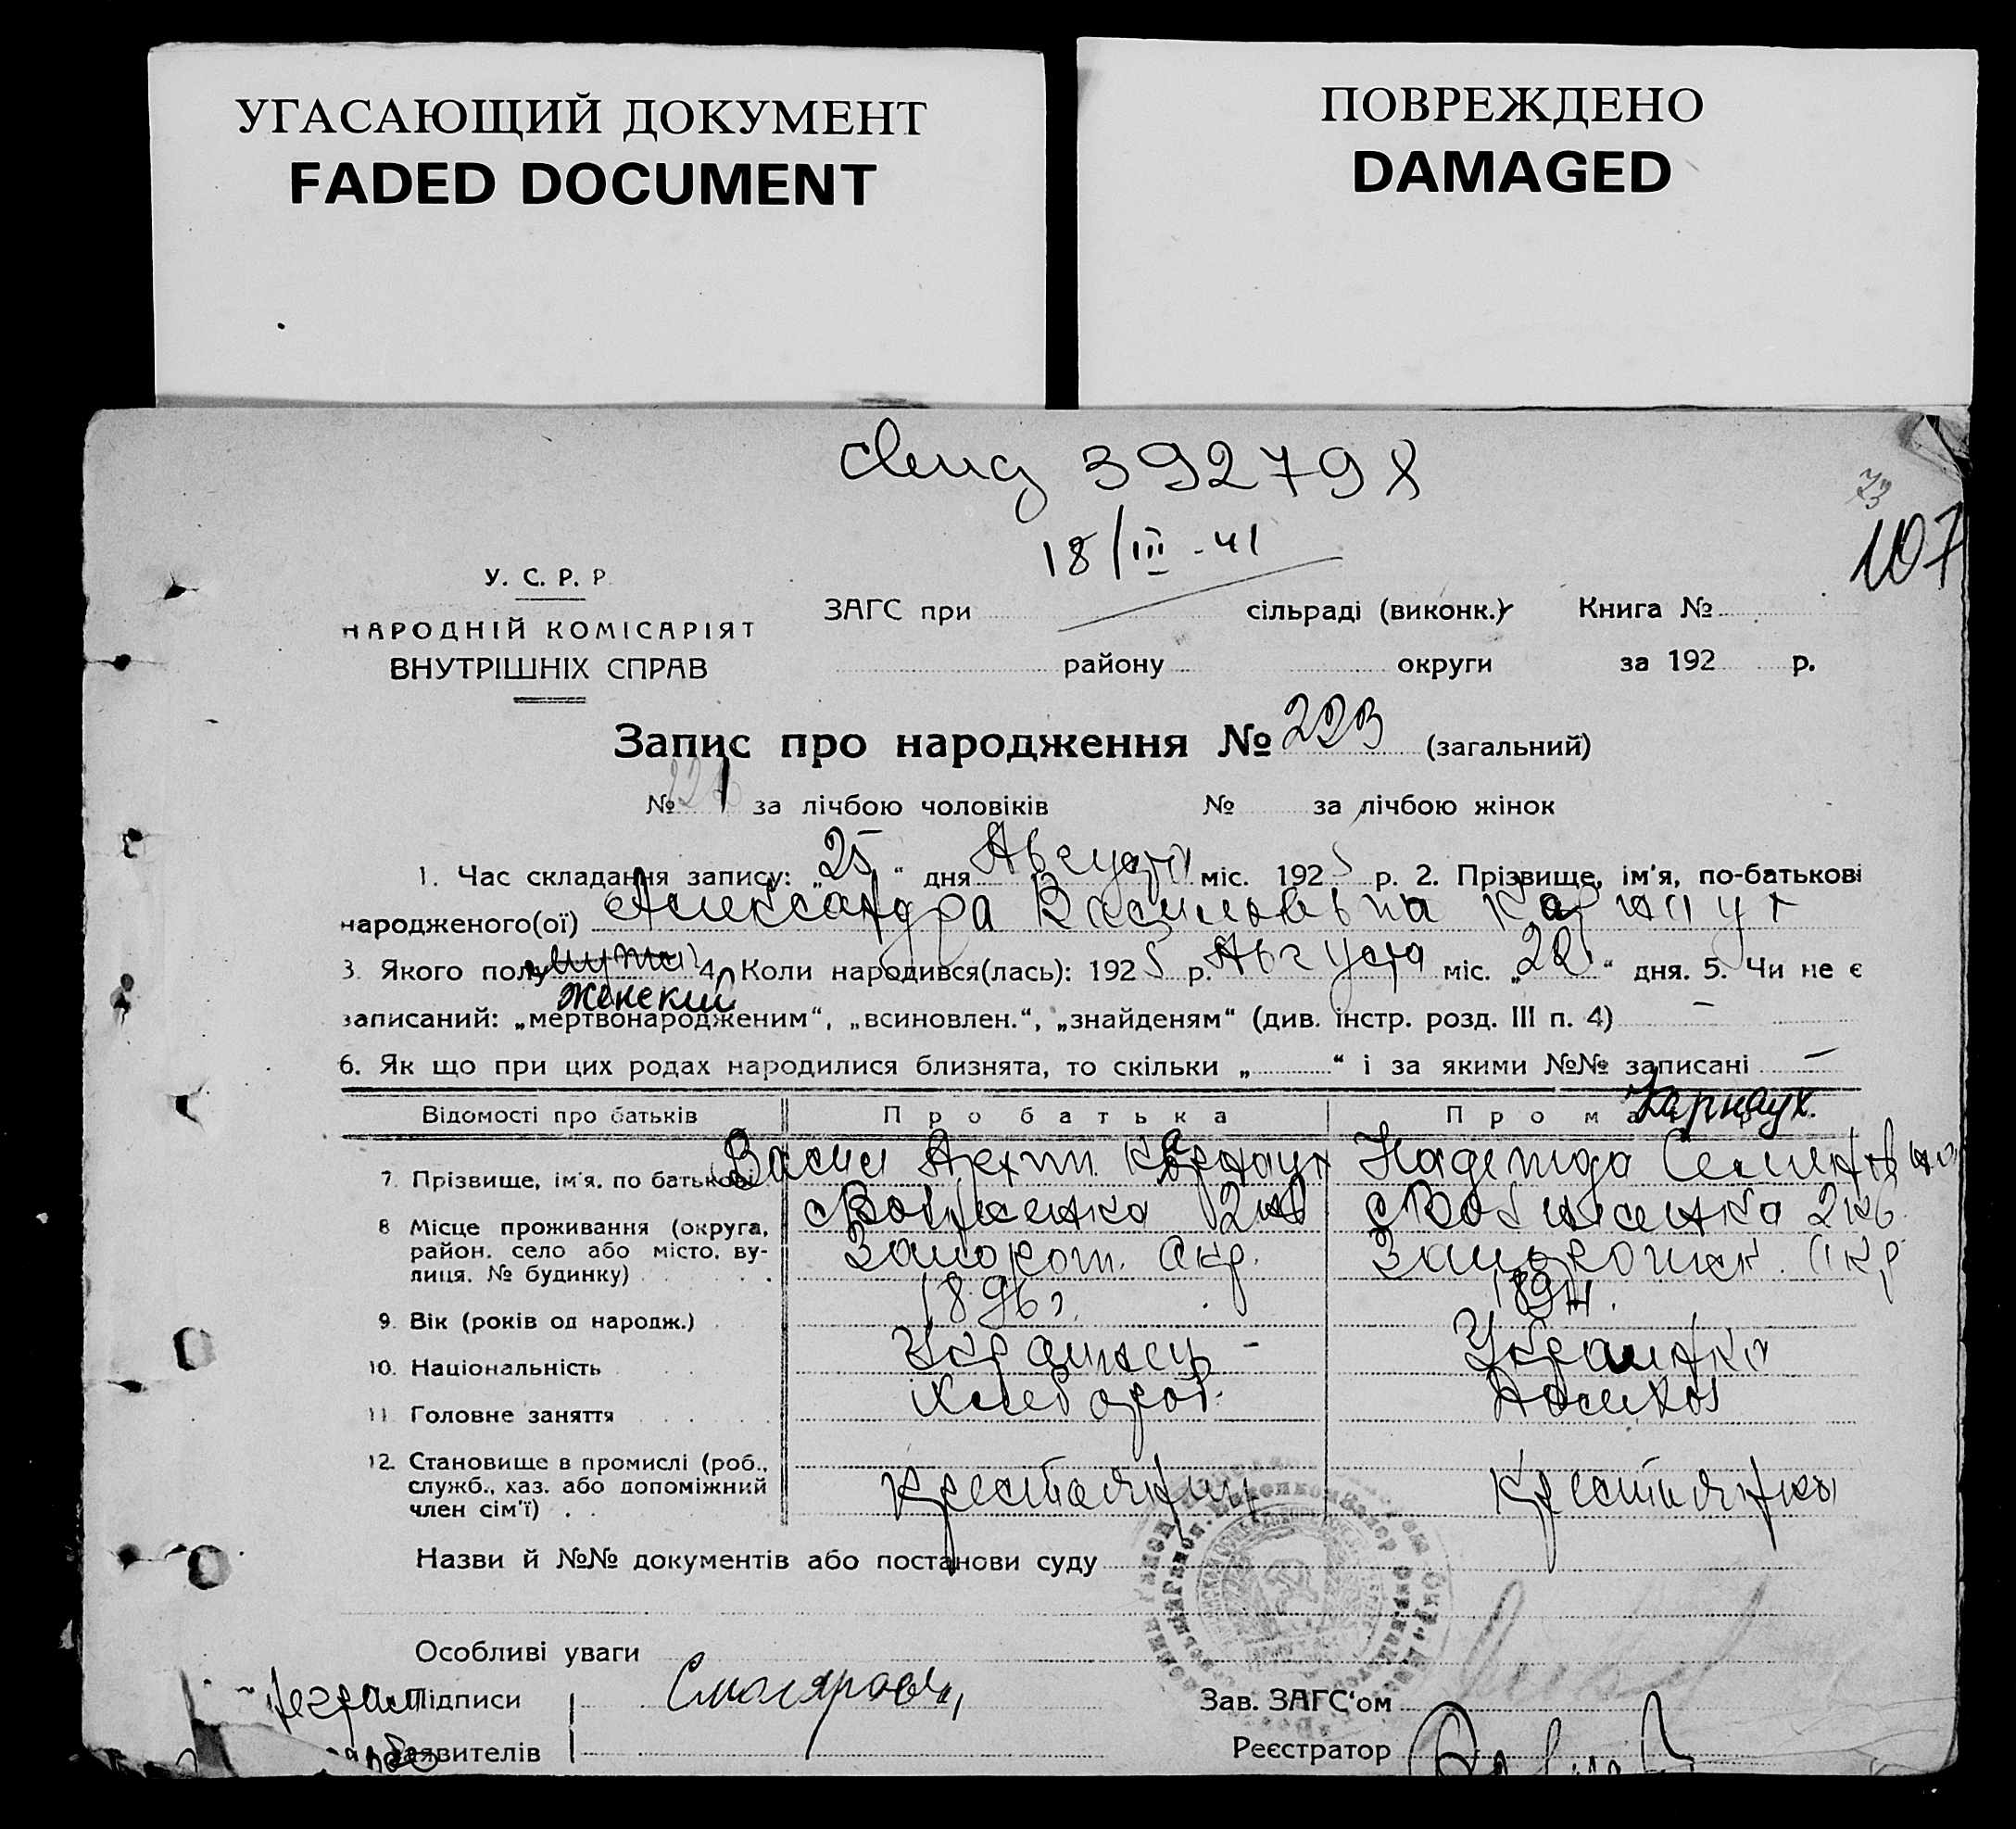 УГАСАЮЩИЙ ДОКУМЕНТ
FADED DOCUMENT
ПОВРЕЖДЕНО
DAMAGED
392798
18/III - 41
73
107
У. С. Р. Р.
НАРОДНІЙ КОМІСАРІЯТ
ВНУТРІШНІХ СПРАВ
ЗАГС при сільраді (виконк.) Книга №
району округи за 192 р.
Запис про народження № 223 (загальний)
№ за лічбою чоловіків № за лічбою жінок
1. Час складання запису: „25“ дня Августа міс. 1925 р. 2. Прізвище, ім'я, по-батькові
народженого(ої) Александра Василовна Карнаух
3. Якого полу 4. Коли народився(лась): 1925 р. Августа міс. „22“ дня. 5. Чи не є
Женский
записаний: „мертвонародженим“, „всиновлен.“, „знайденям“ (див. інстр. розд. III п. 4) —
6. Як що при цих родах народилися близнята, то скільки „ “ і за якими №№ записані —
Відомості про батьків Про батька Про ма Карнаух.
7. Прізвище, ім'я, по батькові Васил Архип. Карнаух Надежда Семеновна
8 Місце проживання (округа,
район, село або місто, ву-
лиця, № будинку)
Запорож. Окр. Запорожск. Окр
9. Вік (років од народж.) 1896 г. 1894.
10. Національність Украинец - Украинка
11 Головне заняття Хлебороб.
12. Становище в промислі (роб.,
служб., хаз. або допоміжний
член сім'ї)
Крестьянин Крестьянка
Назви й №№ документів або постанови суду
Особливі уваги
Підписи Смолярова
заявителів
Зав. ЗАГС'ом
Реєстратор